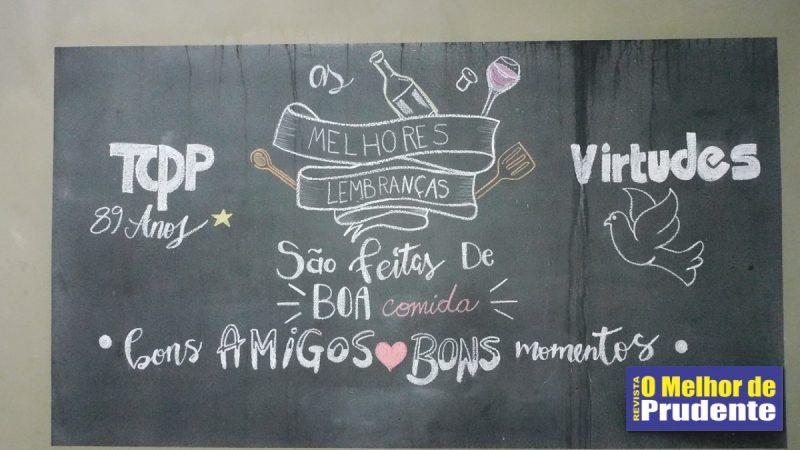 as
MELHORES
LEMBRANÇAS
TCPP
89 Anos
Virtudes
São feitas De
BOA comida
• bons AMiGOS BONS momentos •
REVISTA
O Melhor de
Prudente